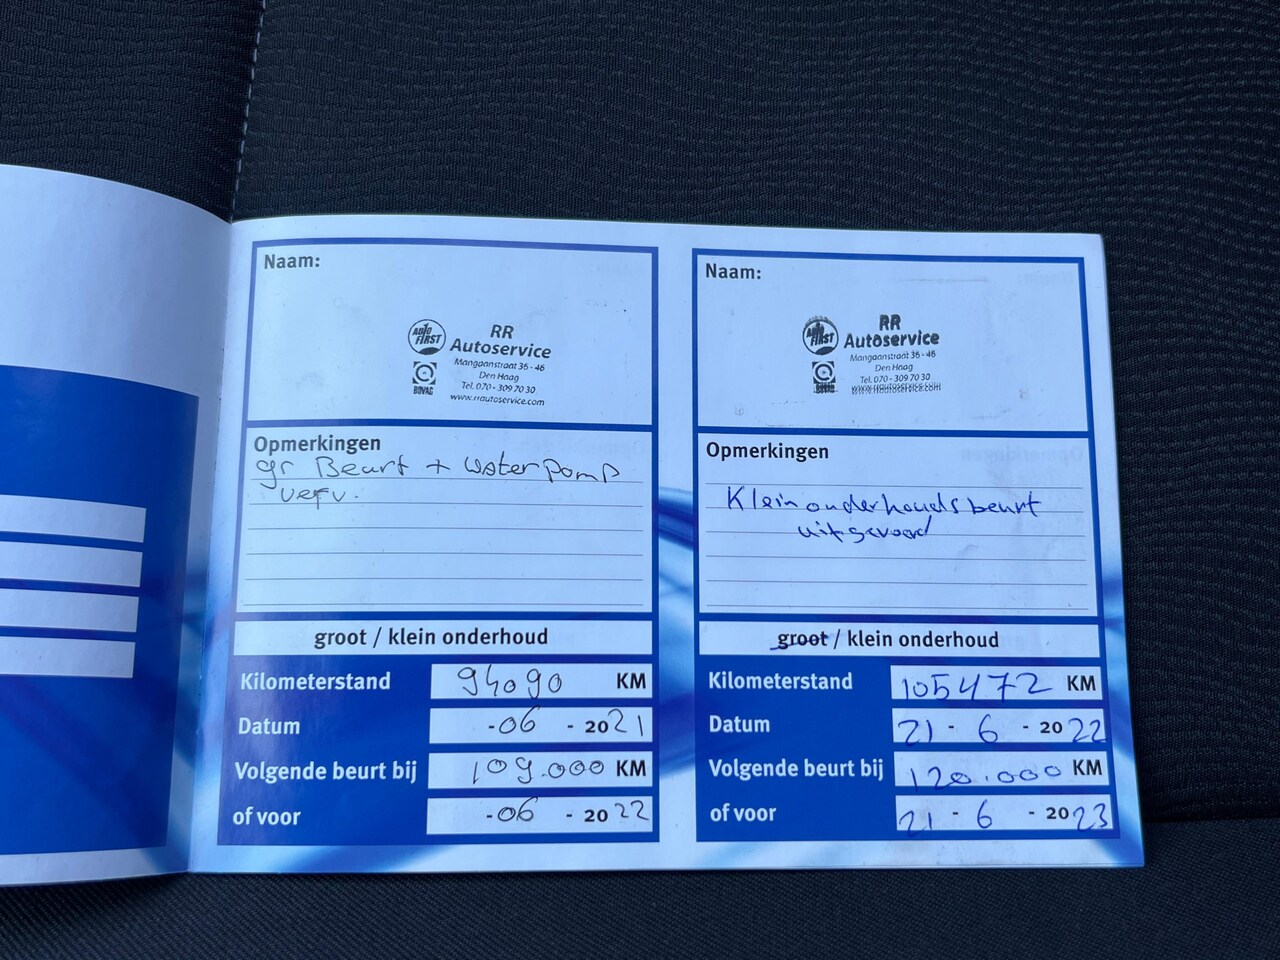 Naam:
AUTO FIRST
RR
Autoservice
Mangaanstraat 36 - 46
Den Haag
Tel. 070 - 309 70 30
www.rrautoservice.com
BOVAG
Opmerkingen
gr Beurt + Waterpomp
verv.
groot / klein onderhoud
Kilometerstand 94090 KM
Datum -06 - 2021
Volgende beurt bij 109.000 KM
of voor -06 - 2022
Naam:
AUTO FIRST
RR
Autoservice
Mangaanstraat 36 - 46
Den Haag
Tel. 070 - 309 70 30
www.rrautoservice.com
BOVAG
Opmerkingen
Klein onderhoudsbeurt
uitgevoerd
groot / klein onderhoud
Kilometerstand 105472 KM
Datum 21 - 6 - 2022
Volgende beurt bij 120.000 KM
of voor 21 - 6 - 2023